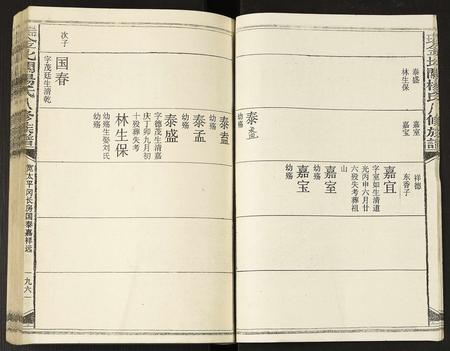 泰盛
林生保
嘉室
嘉宝
祥德
东香子
嘉宜
字室如生清道
光丙申六月廿
六殁失考葬祖
山
嘉室
幼殇
嘉宝
幼殇
泰盍
幼殇
次子
国春
字茂廷生清乾
泰盍
幼殇
泰孟
幼殇
泰盛
字德茂生清嘉
庆丁卯九月初
十殁葬失考
林生保
幼殇生娶刘氏
幼殇
氏八修族谱
宽太平冈长房国泰嘉祥远
一九六一